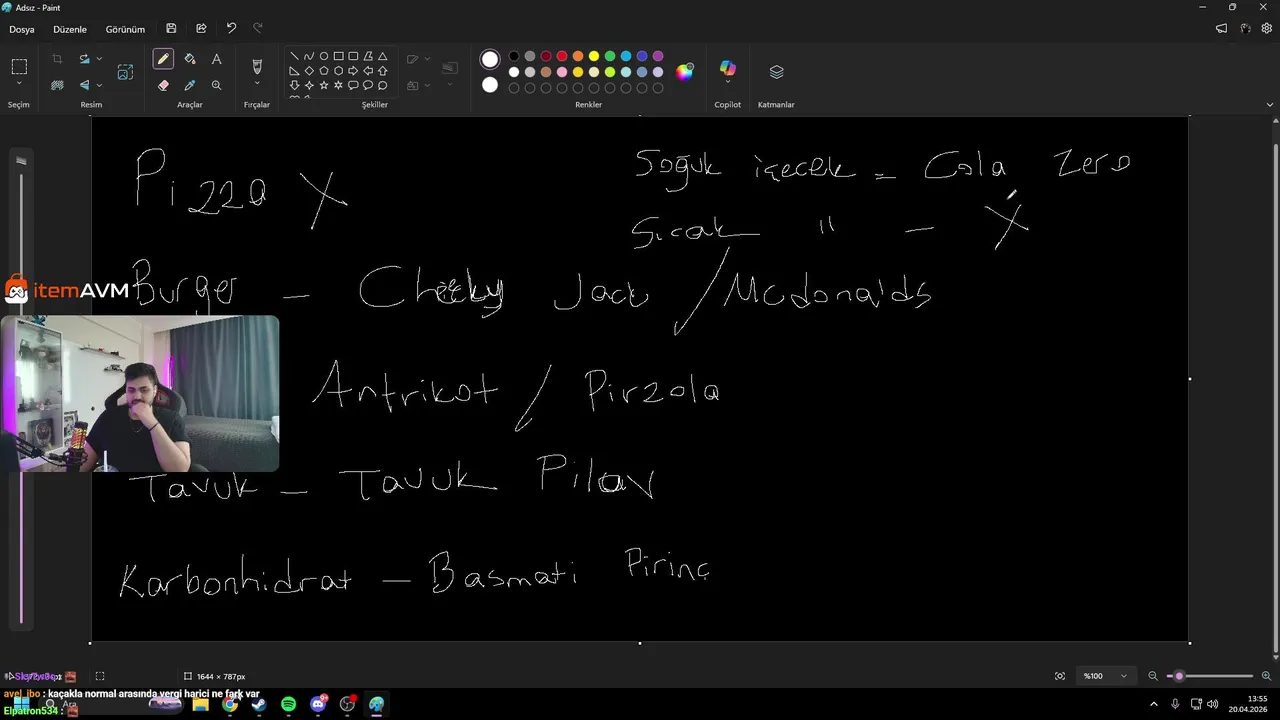 Adsız - Paint
Dosya
Düzenle
Görünüm
Seçim
Resim
Araçlar
Fırçalar
Şekiller
Renkler
Copilot
Katmanlar
Pizza X
Soğuk içecek = Cola Zero
Sıcak " - X
Burger - Cheeky Jack / Mcdonalds
itemAVM
Antrikot / Pirzola
Tavuk - Tavuk Pilav
Karbonhidrat - Basmati Pirinç
1644 × 787px
%100
avel_ibo : kaçakla normal arasında vergi harici ne fark var
Elpatron534 :
Ara
13:55
20.04.2026